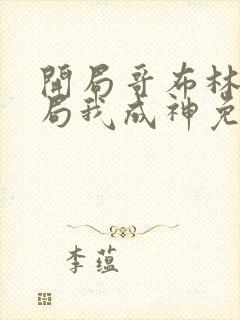 開局哥布林
局我成神免
李蕴